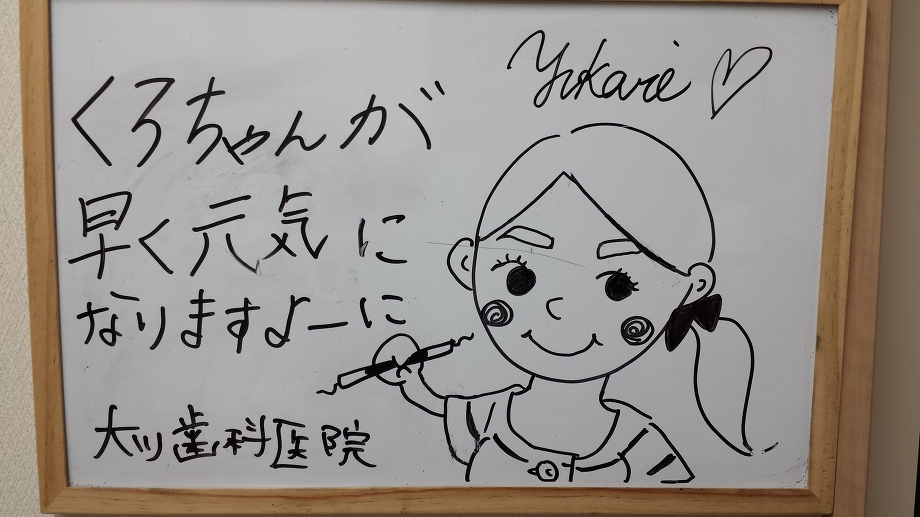 Yukarie
くろちゃんが
早く元気に
なりますよーに
大川歯科医院